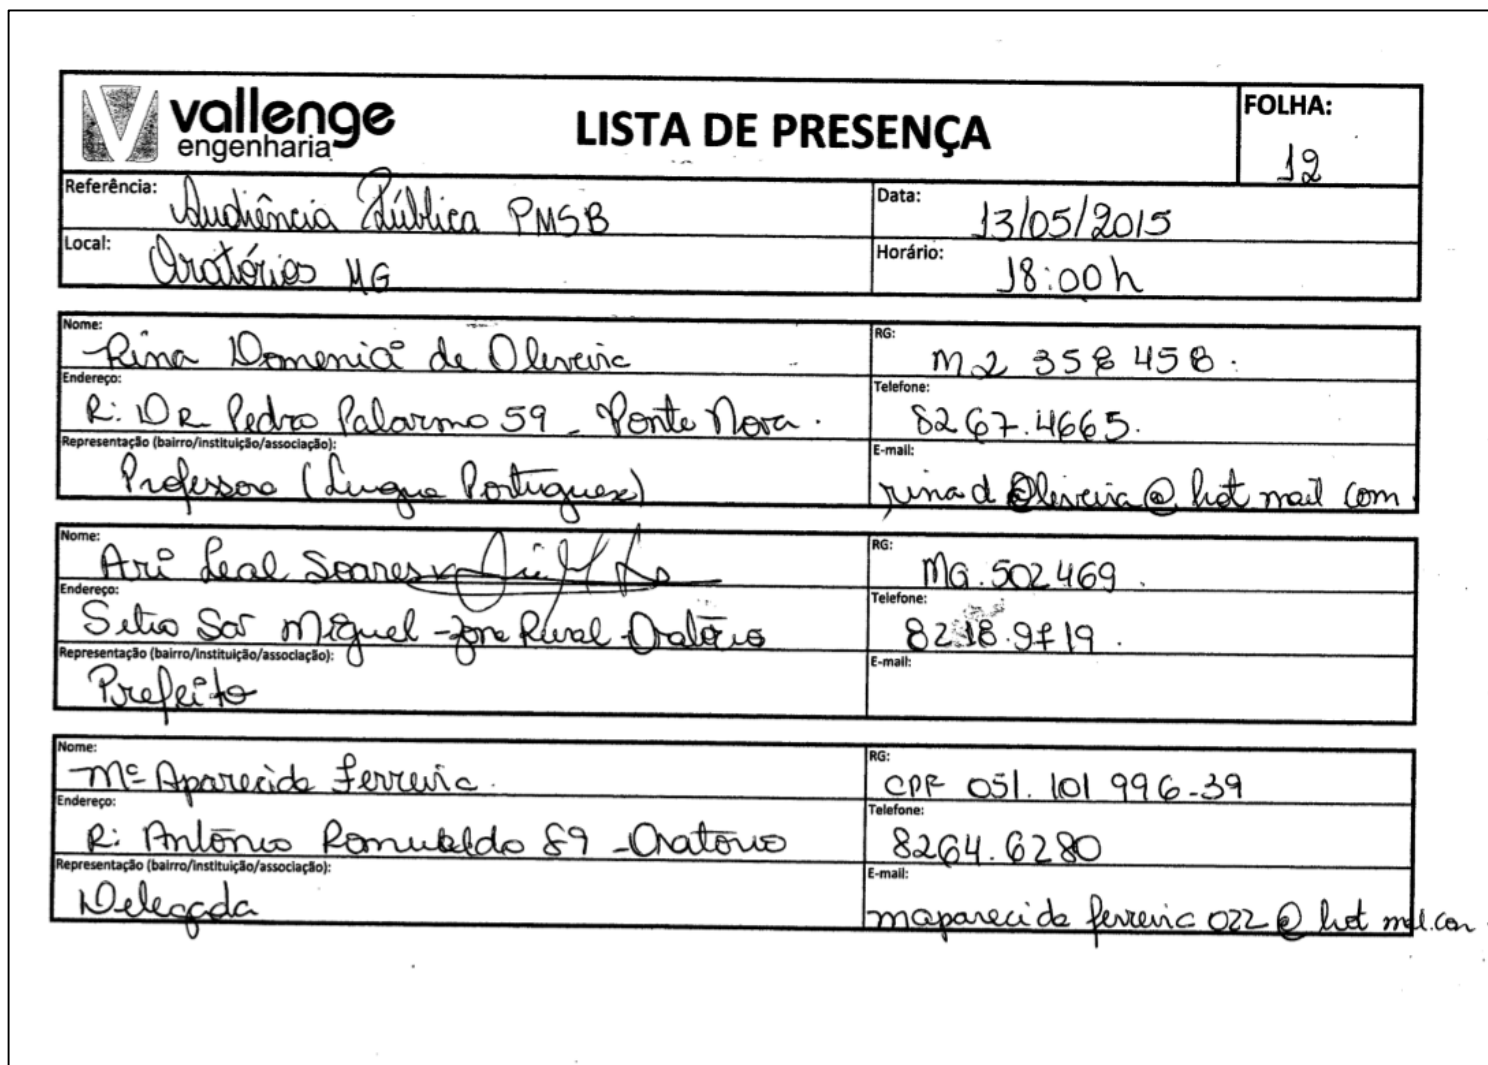 vallenge
engenharia
LISTA DE PRESENÇA
FOLHA:
12
Referência: Audiência Pública PMSB
Data: 13/05/2015
Local: Oratórios MG
Horário: 18:00 h
Nome: Rina Domenici de Oliveira
RG: M2 358 458.
Endereço: R: DR Pedro Palermo 59 - Ponte Nova.
Telefone: 8267.4665.
Representação (bairro/instituição/associação): Professora (Lingua Portuguesa)
E-mail: rina d Oliveira @ hot mail com.
Nome: Ari Leal Soares
RG: MG.502469.
Endereço: Sitio São Miguel - Zona Rural - Oratório
Telefone: 8218.9719.
Representação (bairro/instituição/associação): Prefeito
E-mail:
Nome: Mª Aparecida Ferreira.
RG: CPF 051. 101 996-39
Endereço: R: Antônio Romualdo 89 - Oratório
Telefone: 8264.6280
Representação (bairro/instituição/associação): Delegada
E-mail: maparecida ferreira 022 @ hot